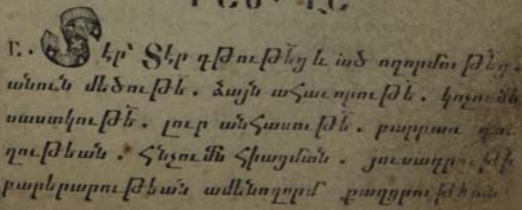 Բ. Տէր՝ Տէր գթութեց և ած ողորմութեց.
անուն մեծութե. ձայն ահաւորութե. կոչումն
սաստկութե. լուր անհասութե. բարբառ
ղութեան. Հնչումն հիացման. յուսադրութի
բարերարութեան ամենողորմ քաղցրութեան